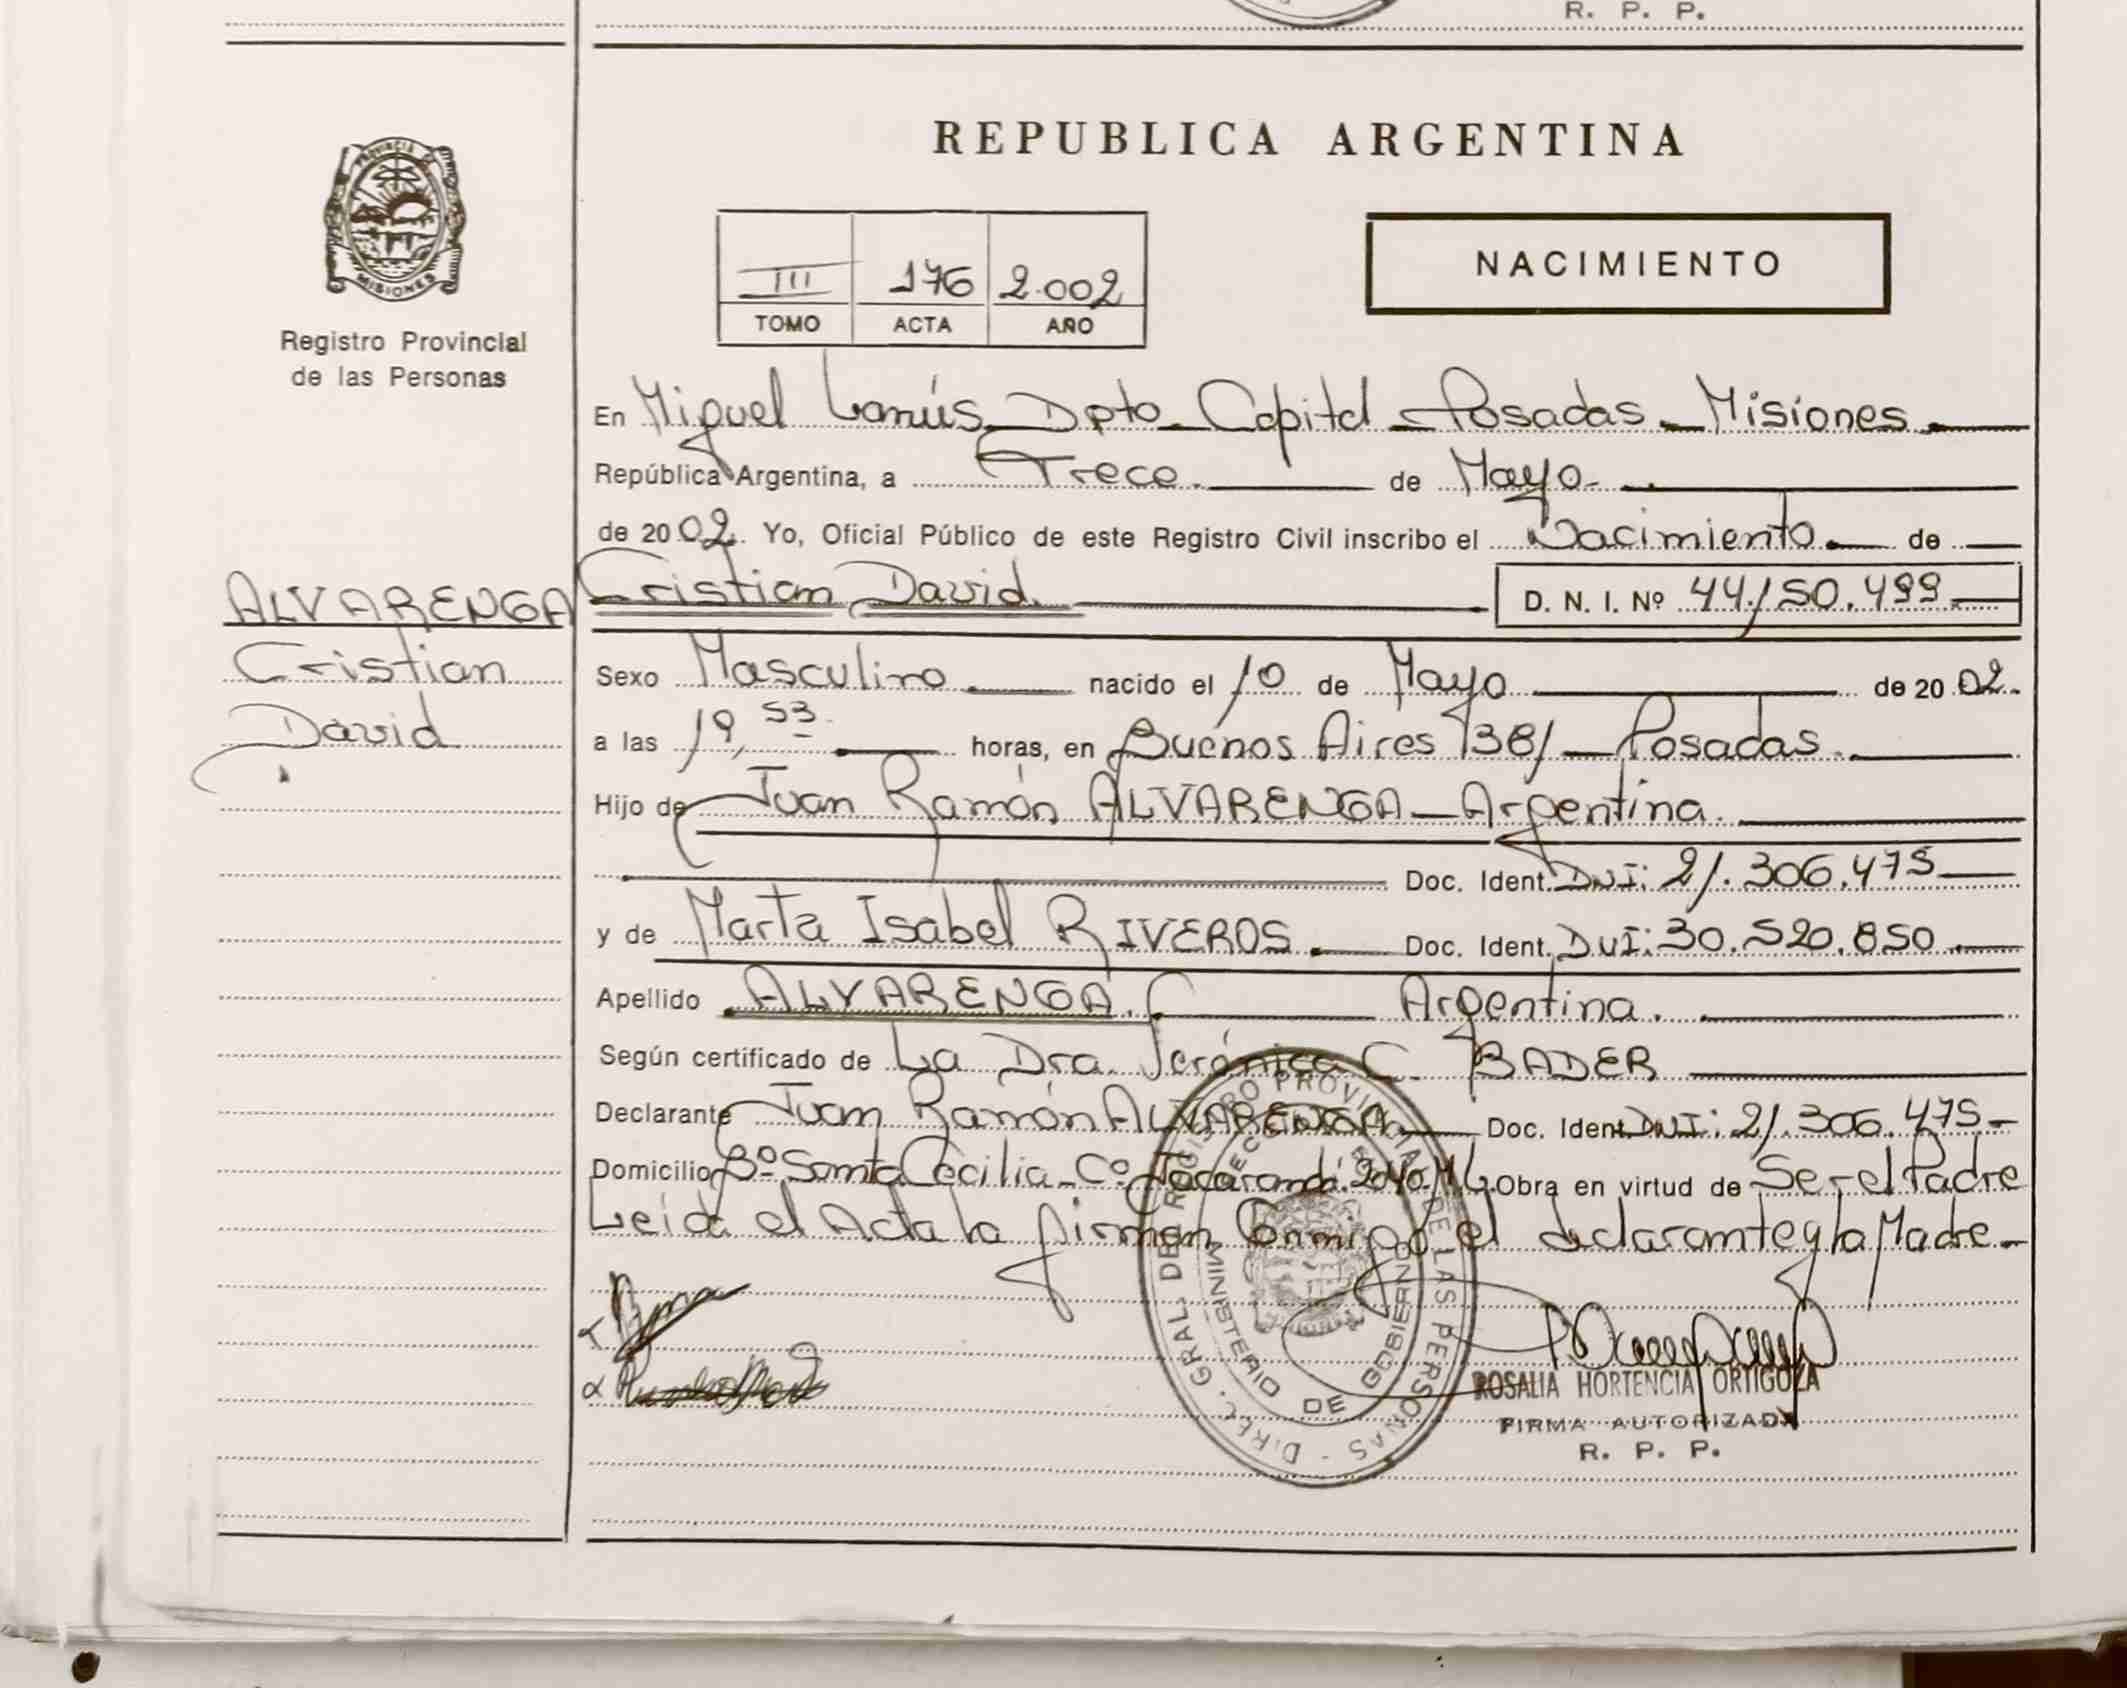 R. P. P.
REPUBLICA ARGENTINA
PROVINCIA DE
MISIONES
Registro Provincial
de las Personas
III 176 2.002
TOMO ACTA AÑO
NACIMIENTO
En Miguel Lanús Dpto Capital - Posadas - Misiones
República Argentina, a Trece de Mayo
de 2002. Yo, Oficial Público de este Registro Civil inscribo el Nacimiento de
ALVARENGA
Cristian
David
Cristian David. D. N. I. Nº 44.150.499
Sexo Masculino nacido el 10 de Mayo de 2002.
a las 19,53 horas, en Buenos Aires 1381 - Posadas.
Hijo de Juan Ramón ALVARENGA - Argentina.
Doc. Ident. DNI: 21.306.475
y de Marta Isabel RIVEROS. Doc. Ident. DNI: 30.520.850
Apellido ALVARENGA. Argentina.
Según certificado de La Dra. C. BADER
Declarante Juan Ramón ALVARENGA Doc. Ident. DNI: 21.306.475
Domicilio Bº Santa Cecilia - Cº Jacarandá. Obra en virtud de Ser el Padre
Leída el Acta la firman Conmigo el declarante y la Madre
DIREC. GRAL. DEL REGISTRO PROVINCIAL DE LAS PERSONAS
MINISTERIO DE GOBIERNO
ROSALIA HORTENCIA ORTIGOZA
FIRMA AUTORIZADA
R. P. P.